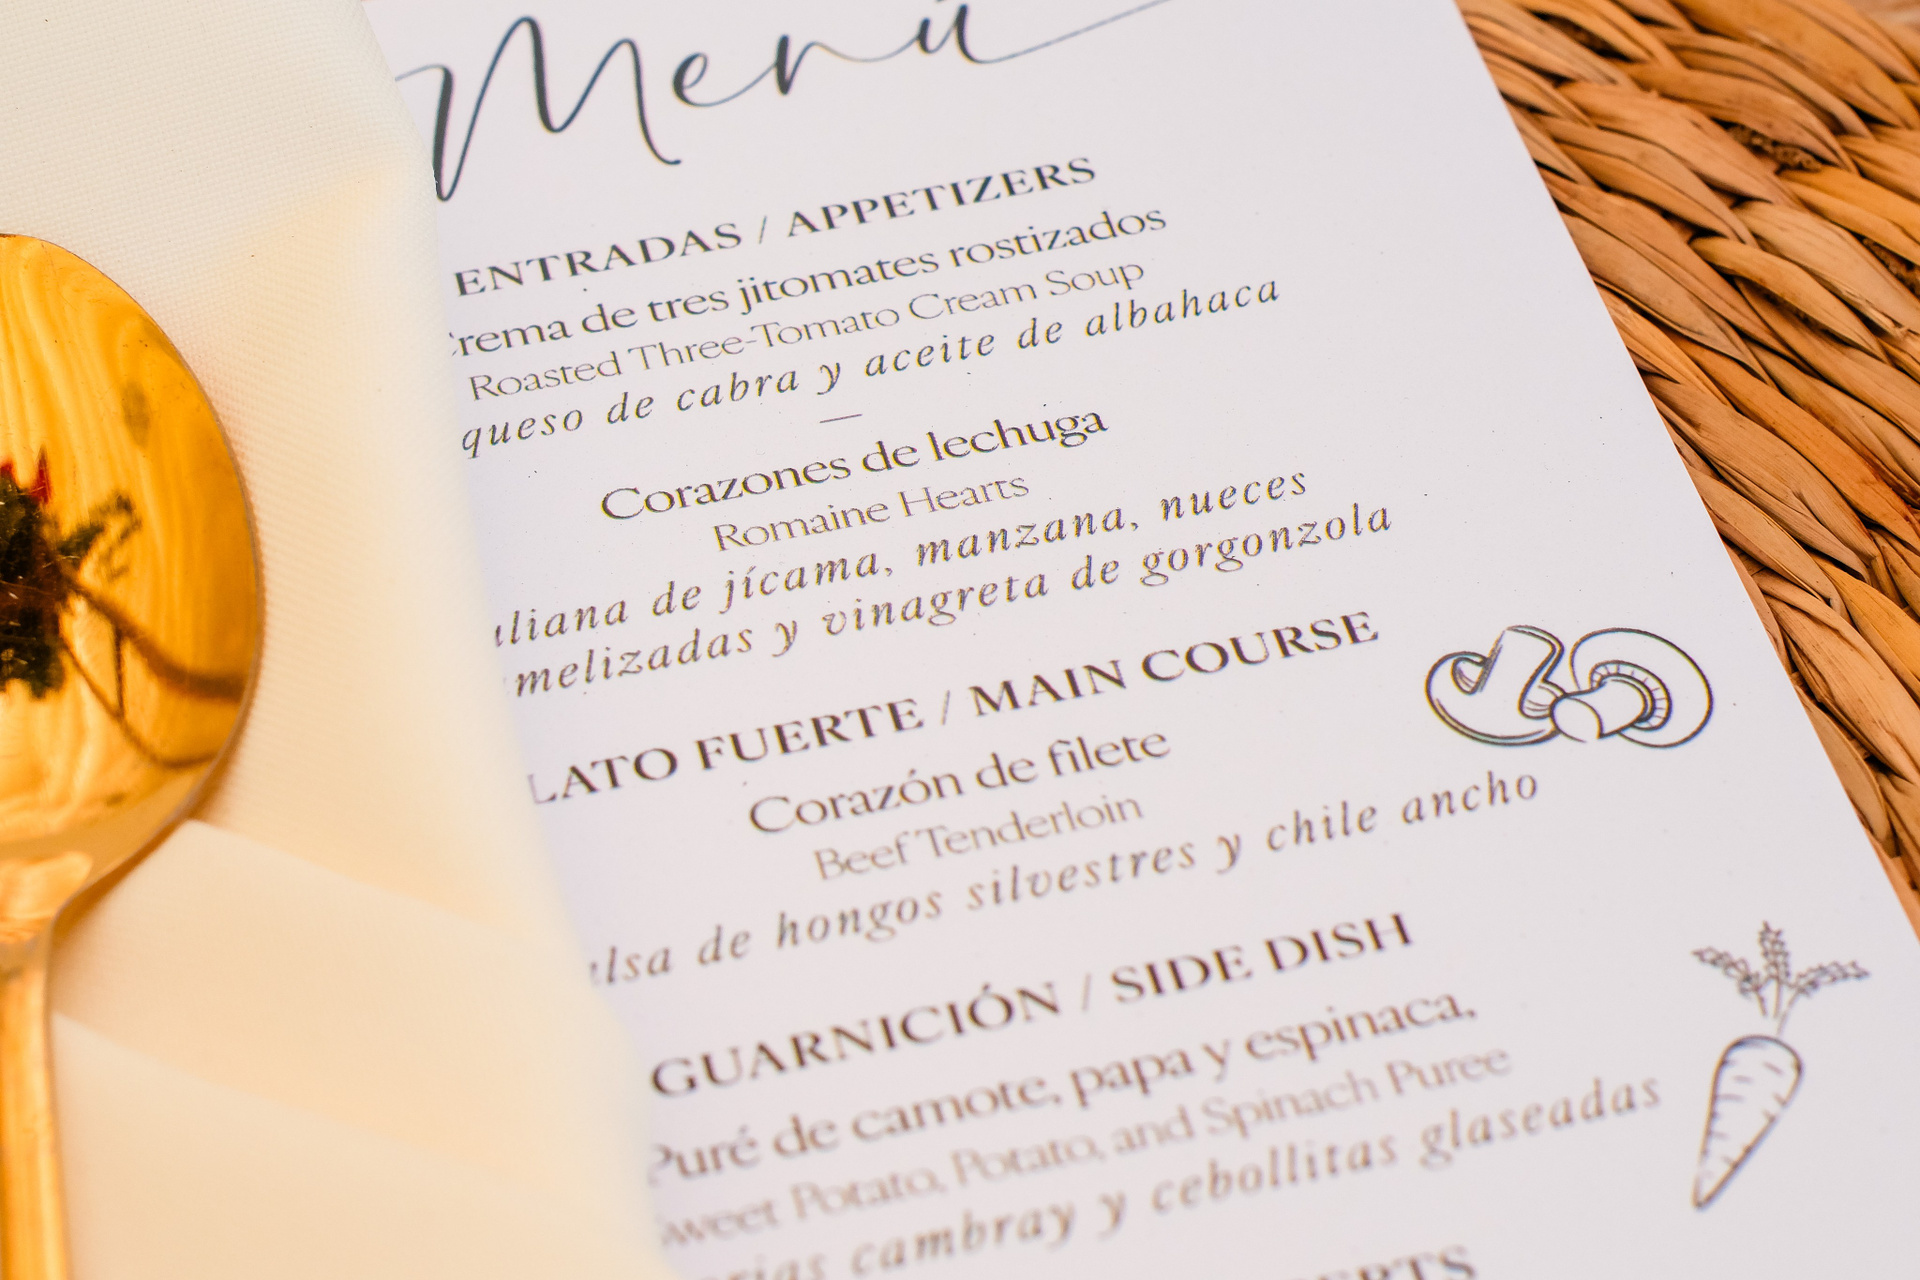 Menú
ENTRADAS / APPETIZERS
rema de tres jitomates rostizados
Roasted Three-Tomato Cream Soup
queso de cabra y aceite de albahaca
Corazones de lechuga
Romaine Hearts
liana de jícama, manzana, nueces
melizadas y vinagreta de gorgonzola
LATO FUERTE / MAIN COURSE
Corazón de filete
Beef Tenderloin
lsa de hongos silvestres y chile ancho
GUARNICIÓN / SIDE DISH
Puré de camote, papa y espinaca,
weet Potato, Potato, and Spinach Puree
cambray y cebollitas glaseadas